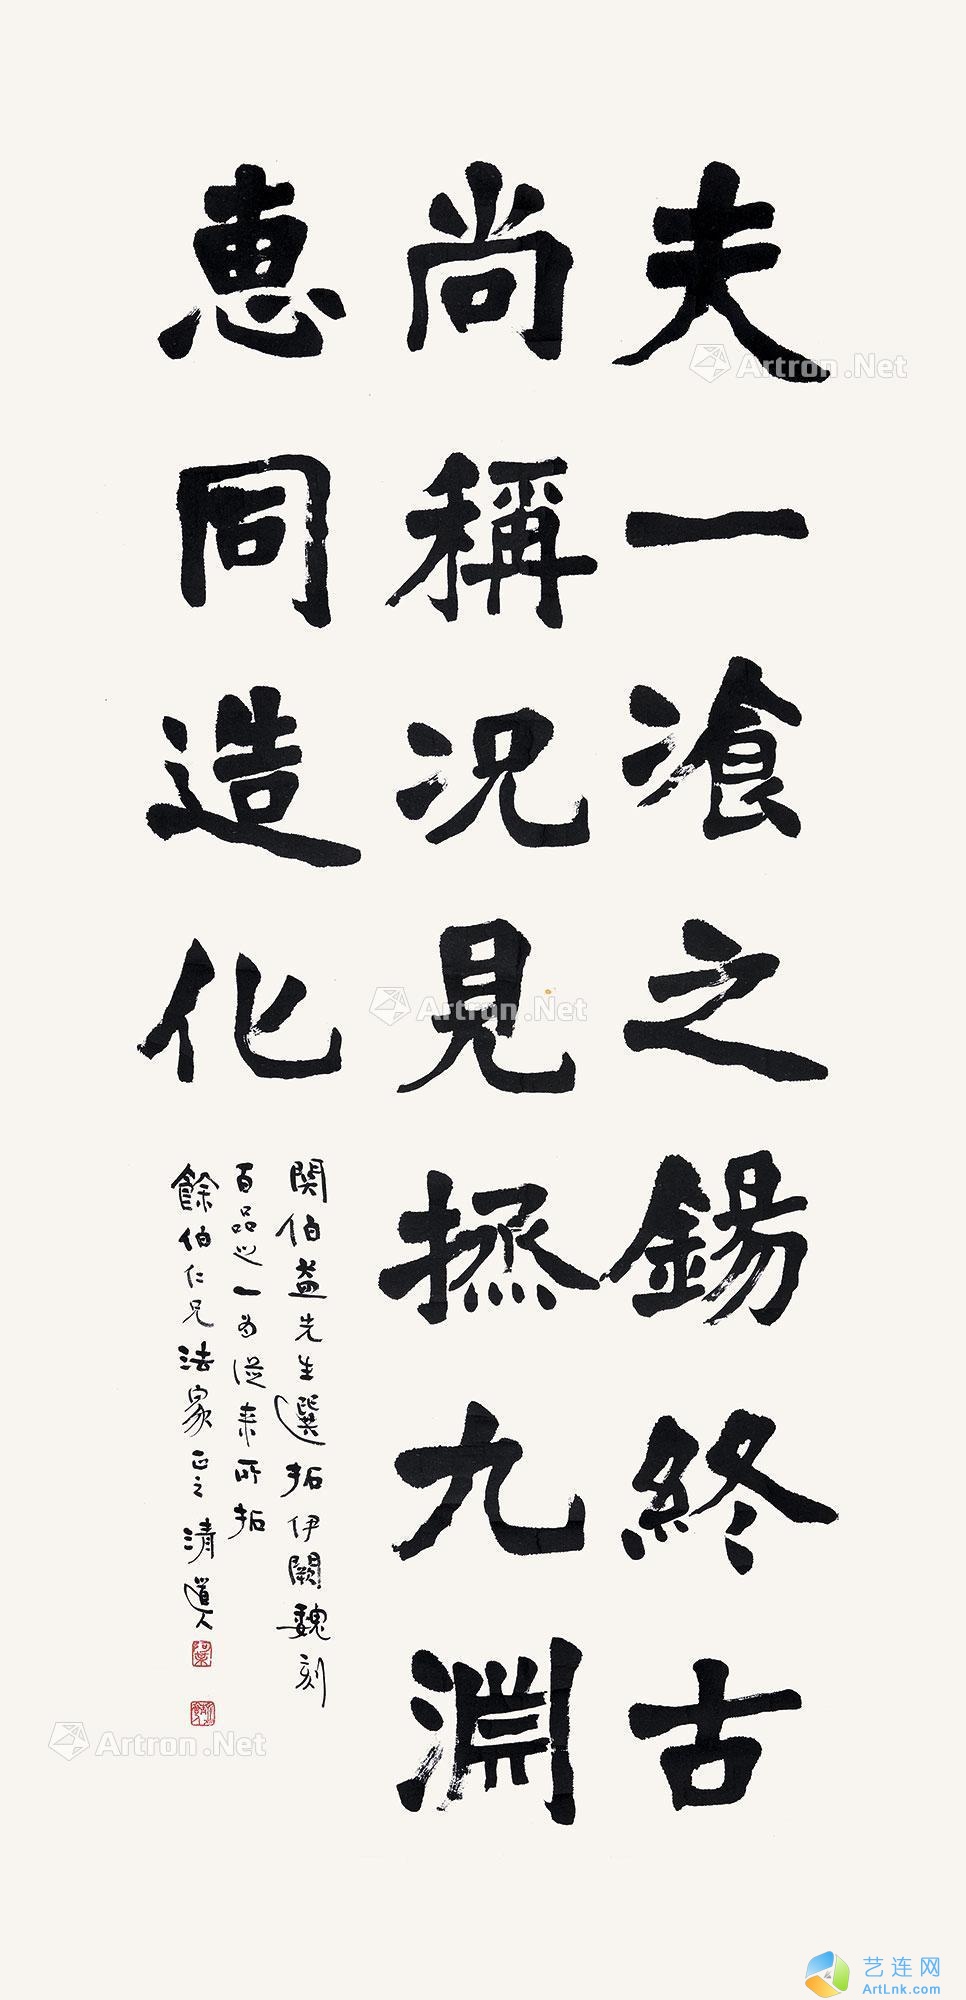 夫一湌之鍚終古
尚稱況見拯九淵
恵同造化
関伯益先生選拓伊闕魏刻
百品之一为従来所拓
餘伯仁兄法家正之 清道人
Artron.Net
Artron.Net
Artron.Net
艺连网
ArtLnk.com